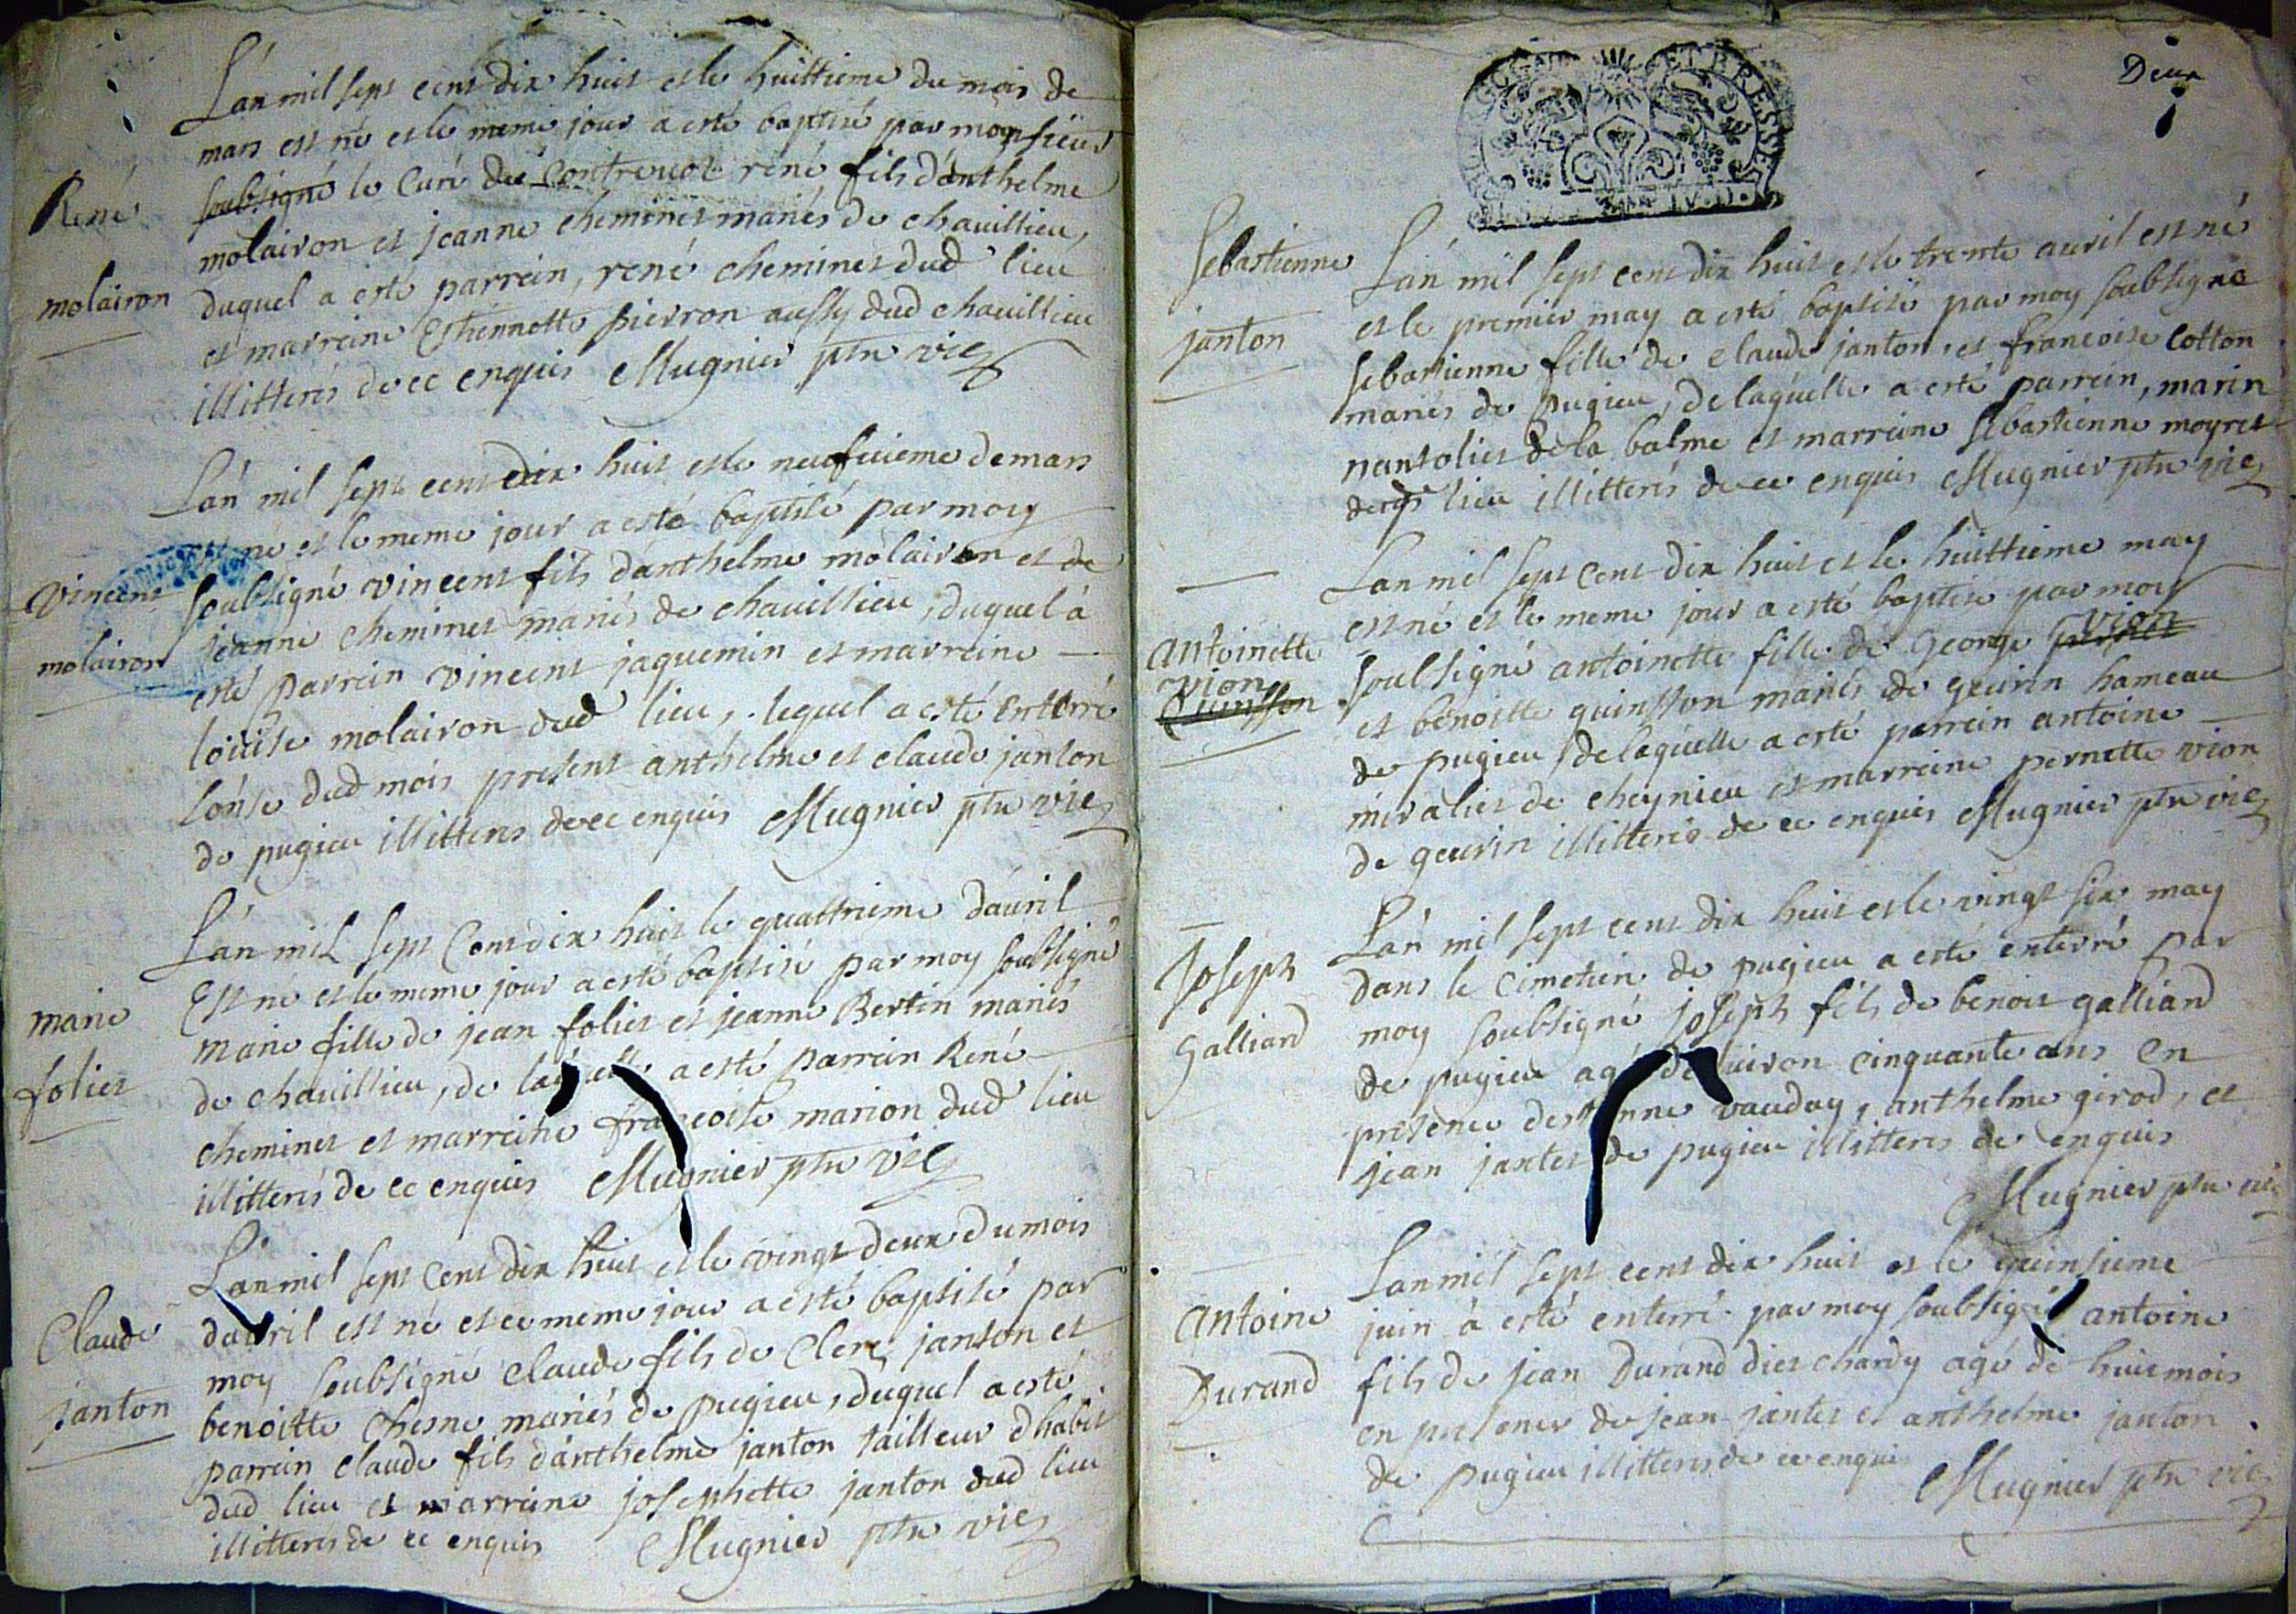 L'an mil sept cent dix huit et le huittieme du mois de
mars est né et le meme jour a esté baptisé par monsieur
soubsigné le Curé de Contrevoz réné fils d'anthelme
René
molairon et jeanne cheminet mariés de chavillieu,
molairon
duquel a esté parrein, rené cheminet dud lieu
et marreine Estiennette pierron aussy dud chavillieu
illitterés de ce enquis Mugnier ptre vic
L'an mil sept cent dix huit et le neufvieme de mars
est né et le meme jour a esté baptisé par moy
Vincent
soubsigné vincent fils d'anthelme molairon et de
molairon
jeanne cheminet mariés de chavillieu, duquel à
esté parrein vincent jaquemin et marreine
loüise molairon dud lieu, lequel a esté enterré
l'onse dud mois present anthelme et claude janton
de pugieu illitteres de ce enquis Mugnier ptre vic
L'an mil sept Cent dix huit le quattrieme d'avril
Est né et le meme jour a esté baptisé par moy soubsigné
marie
marie fille de jean folliet et jeanne Bertin mariés
foliet
de chavillieu, de laquelle a esté parrein René
cheminet et marreine françoise marion dud lieu
illitterés de ce enquis Mugnier ptre vic
L'an mil sept Cent dix huit et le vingt deux du mois
Claude
davril est né et ce meme jour a esté baptisé par
moy soubsigné Claude fils de Clerc janton et
janton
benoitte Chesne mariés de pugieu, duquel a esté
parrein claude fils d'anthelme janton tailleur dhabit
dud lieu et marreine josephette janton dud lieu
illitterés de ce enquis Mugnier ptre vic
Deux
ET BRESSE
Sebastienne
L'an mil sept cent dix huit et le trente avril est né
janton
et le premier may a esté baptisé par moy soubsigné
sebastienne fille de claude janton, et francoise Cotton
mariés de Pugieu, de laquelle a esté parrein, marin
nantoliet de la balme et marreine sebastienne moyret
dud lieu illitterés de ce enquis Mugnier ptre vic
L'an mil sept Cent dix huit et le huittieme may
est né et le meme jour a esté baptisé par moy
Antoinette
soubsigné antoinette fille de George vion
vion
Quinsson
et benoitte quinsson mariés de geurin hameau
de pugieu, de laquelle a esté parrein antoine
miraliet de cheynieu et marreine pernette vion
de geurin illitterés de ce enquis Mugnier ptre vic
L'an mil sept cent dix huit et le vingt six may
Joseph
dans le cimetier de pugieu a esté enterré par
Galliand
moy soubsigné joseph fils de benoit galliand
de pugieu agé denviron cinquante ans en
presence destienne vauday, anthelme girod, et
jean jantet de pugieu illitteres de enquis
Mugnier ptre vic
L'an mil sept cent dix huit et le quinsieme
Antoine
juin à esté enterré par moy soubsigné antoine
Durand
fils de jean Durand diet chardy agé de huit mois
en presence de jean jantet et anthelme janton
de pugieu illitterés de ce enquis
Mugnier ptre vic